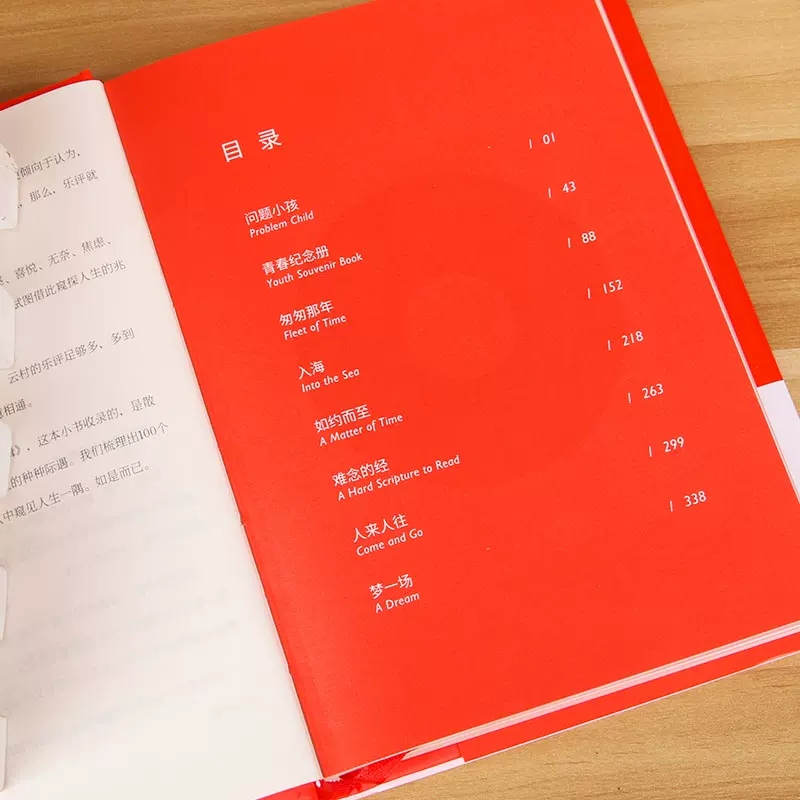 倾向于认为,
那么,乐评就
、喜悦、无奈、焦虑、
试图借此窥探人生的兆
云村的乐评足够多,多到
相通。
,这本小书收录的,是散
的种种际遇。我们梳理出100个
中窥见人生一隅。如是而已。
目录
| 01
问题小孩
Problem Child
| 43
青春纪念册
Youth Souvenir Book
| 88
匆匆那年
Fleet of Time
| 152
入海
Into the Sea
| 218
如约而至
A Matter of Time
| 263
难念的经
A Hard Scripture to Read
| 299
人来人往
Come and Go
| 338
梦一场
A Dream